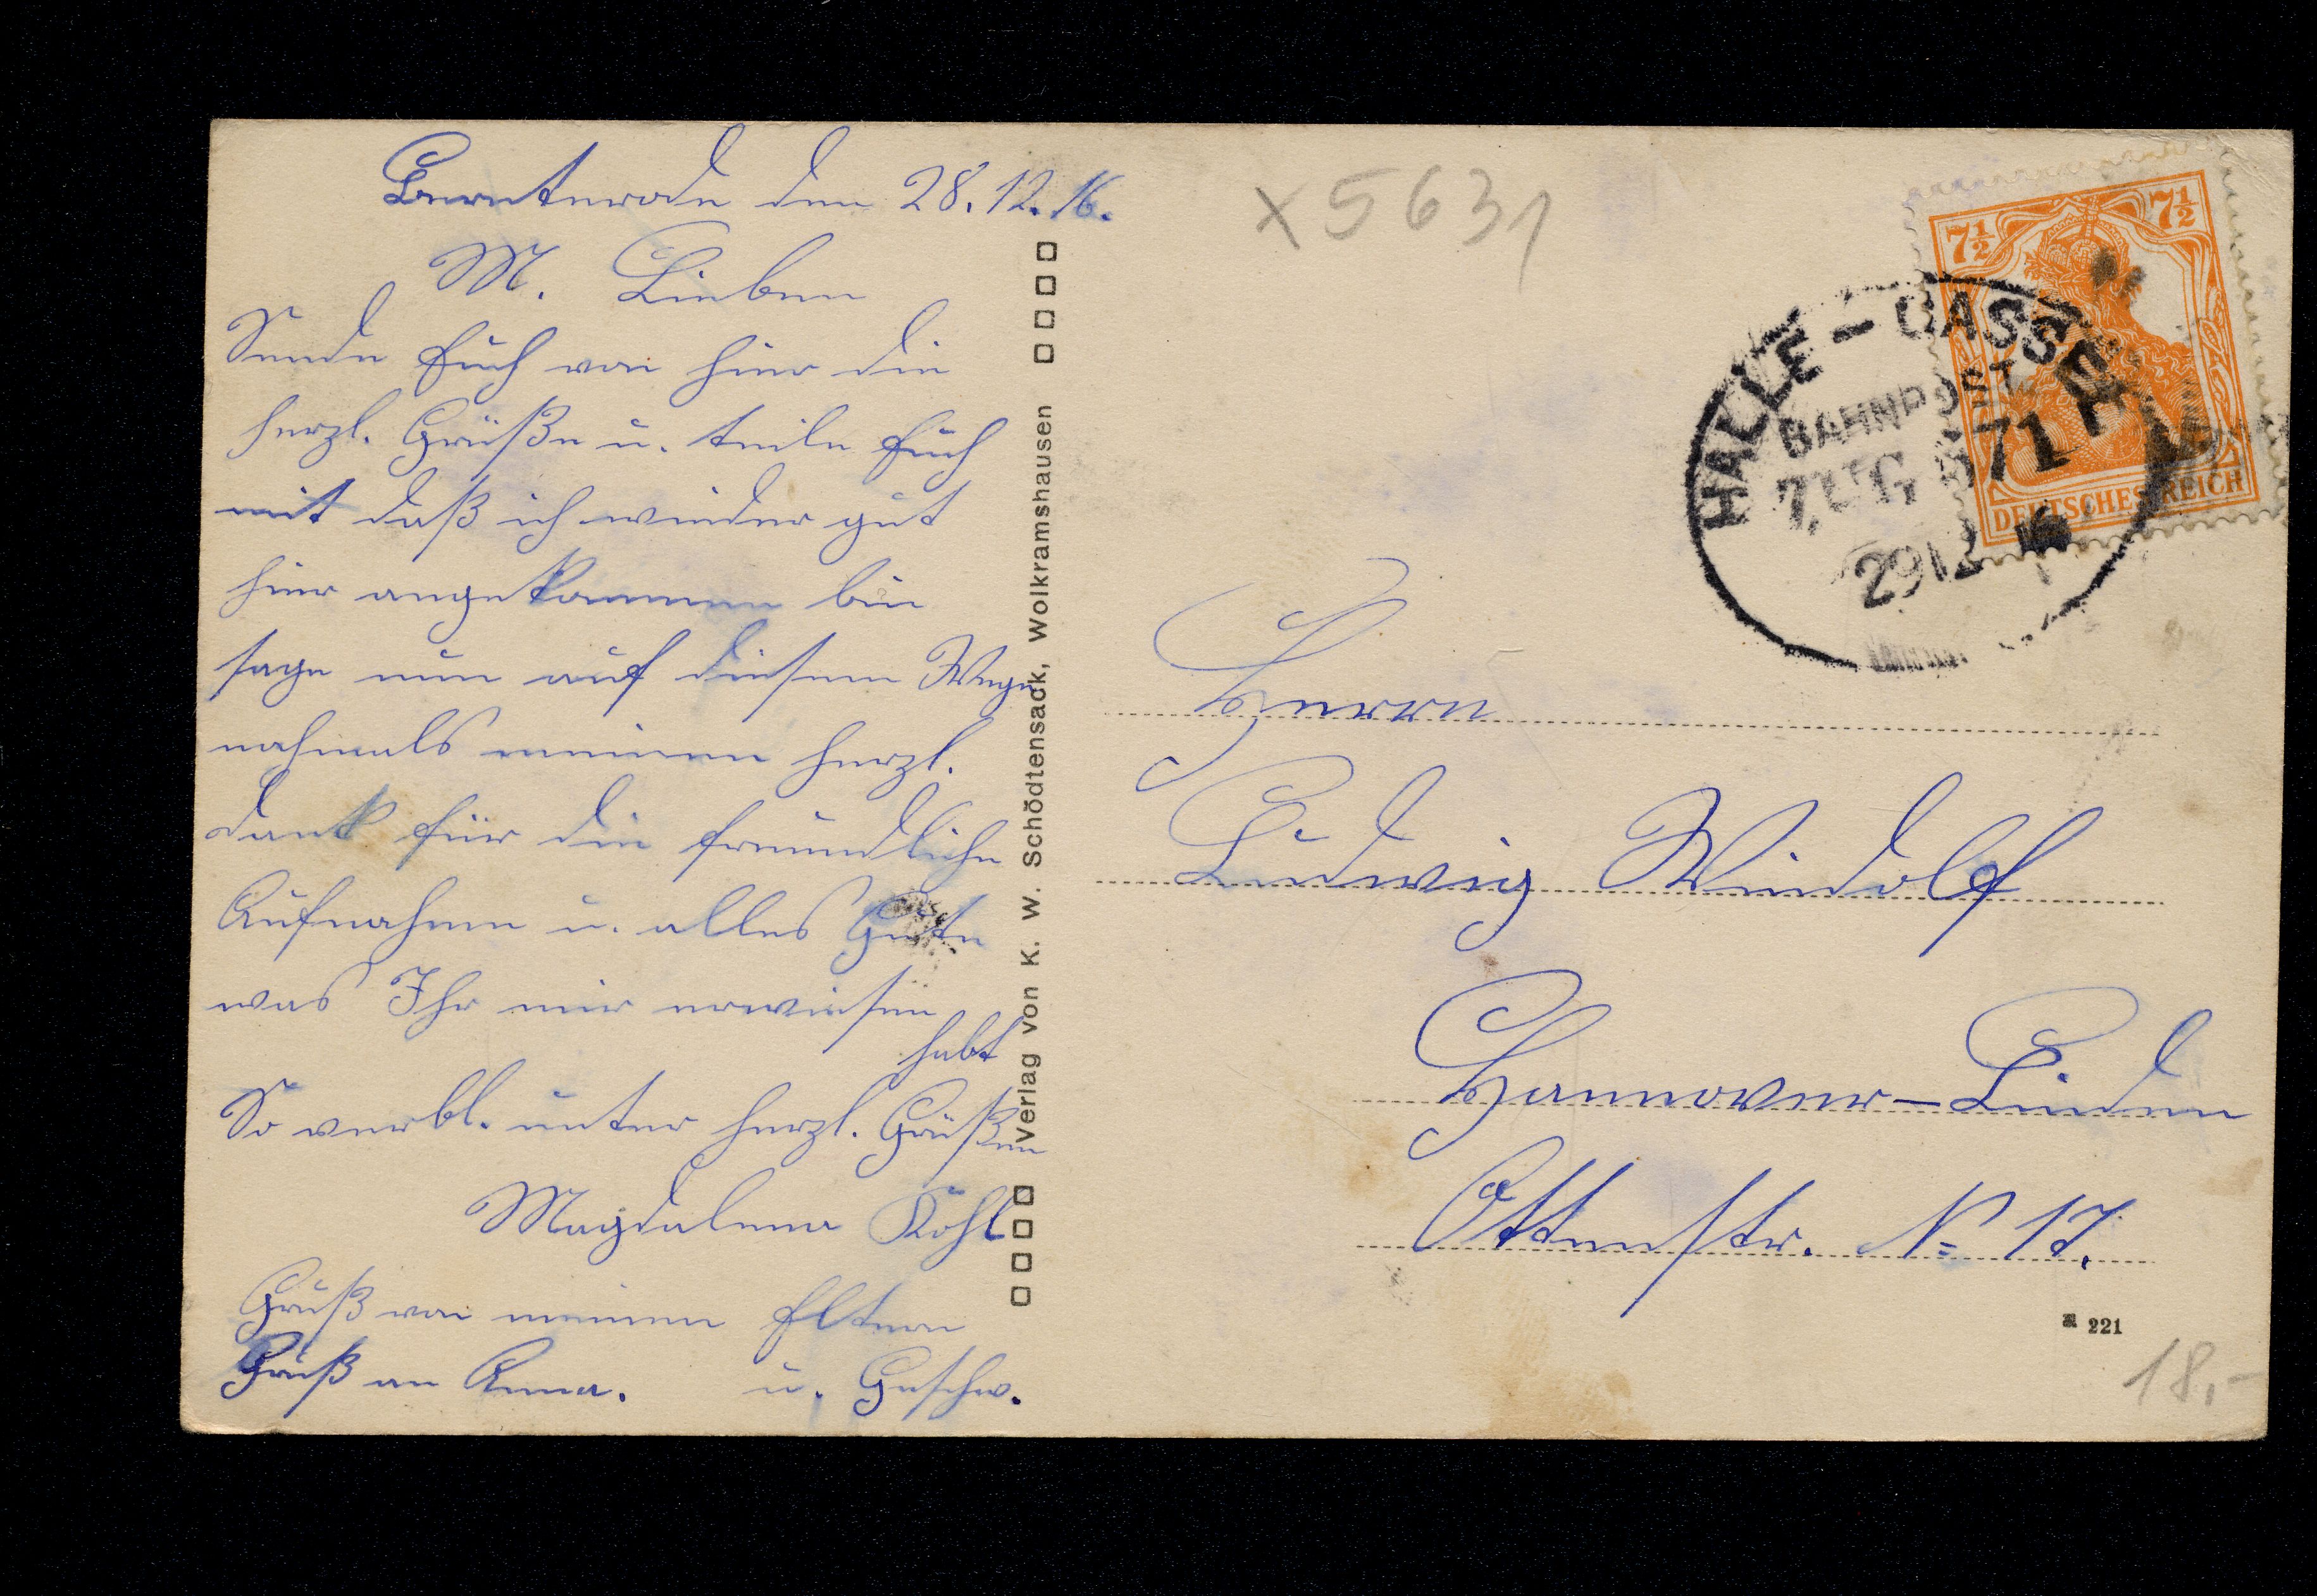 Bernterode den 28.12.16.
M. Lieben
Sende Euch von hier die
herzl. Grüße u. teile Euch
mit daß ich wieder gut
hier angekommen bin
sage nun auf diesem Wege
nochmals meinen herzl.
Dank für die freundliche
Aufnahme u. alles Gute
was Ihr mir erwiesen
habt
So verbl. unter herzl. Grüßen
Magdalena Kohl
Gruß von meinen Eltern
u. Geschw.
Gruß an Anna.
Verlag von K. W. Schödtensack, Wolkramshausen
X 5631
7½ 7½
DEUTSCHES REICH
HALLE - CASSEL
BAHNPOST
ZUG 71
29 12 16
Herrn
Ludwig Windolf
Hannover-Linden
Ottenstr. N= 17.
221
18,-